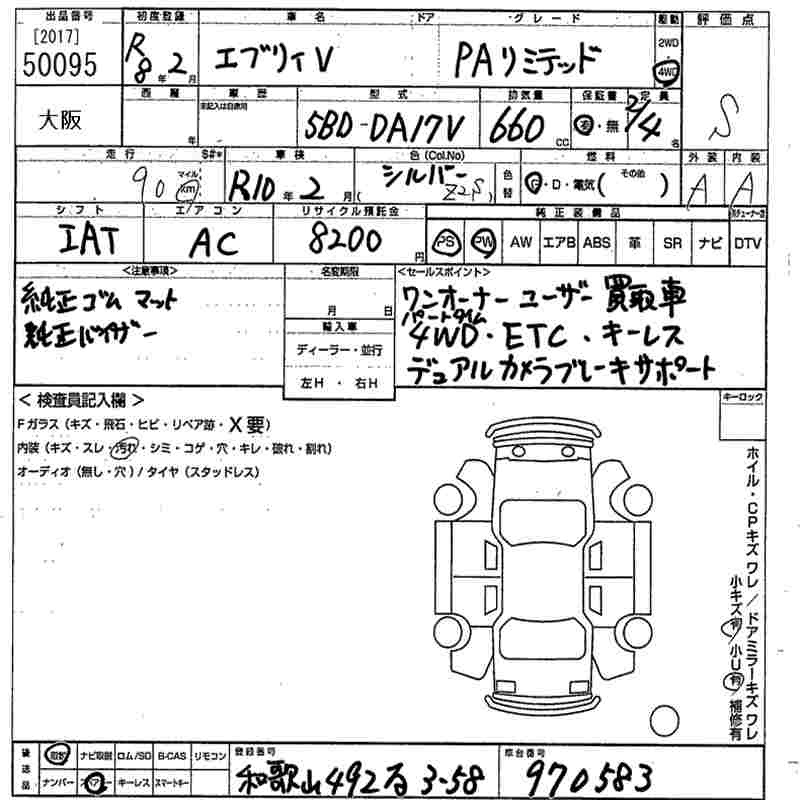 出品番号 初度登録 車名 ドア グレード 駆動 評価点
[2017] 50095 R8年2月 エブリイV PAリミテッド 2WD 4WD S
大阪 西暦 年 車歴 未記入は自家用 型式 排気量 保証書 定員
5BD-DA17V 660cc 有・無 2/4名
走行 S#* 車検 色(Col.No) 色替 燃料 外装 内装
90 マイル km R10年2月 シルバー (Z2S) G・D・電気( その他 ) A A
シフト エアコン リサイクル預託金 純正装備品
IAT AC 8200円 PS PW AW エアB ABS 革 SR ナビ DTV
<注意事項> 名変期限 <セールスポイント>
純正ゴムマット 月 日 ワンオーナーユーザー買取車
純正バイザー 輸入車 パートタイム
ディーラー・並行 4WD・ETC、キーレス
左H・右H デュアルカメラブレーキサポート
<検査員記入欄> キーロック
Fガラス(キズ・飛石・ヒビ・リペア跡・X要)
内装(キズ・スレ・汚れ・シミ・コゲ・穴・キレ・破れ・割れ)
オーディオ(無し・穴)/タイヤ(スタッドレス)
ホイル・CPキズ ワレ/ドアミラーキズ ワレ
小キズ有/小U有/補修有
後送品 ナビ取説 ロム/SD B-CAS リモコン 登録番号 車台番号
ナンバー キーレス スマートキー 和歌山 492 る 3-58 970583